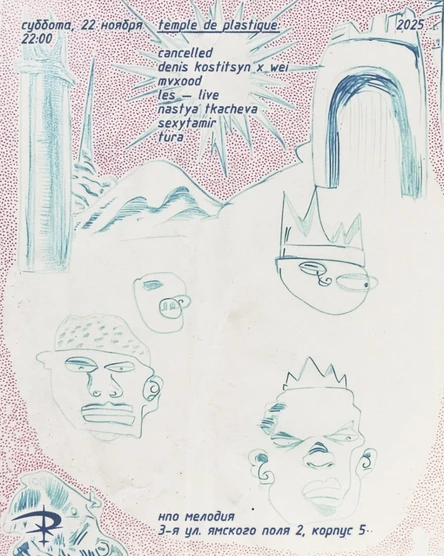 суббота, 22 ноября temple de plastique: 2025
22:00
cancelled
denis kostitsyn x wei
mvxood
les — live
nastya tkacheva
sexytamir
tura
нпо мелодия
3-я ул. ямского поля 2, корпус 5